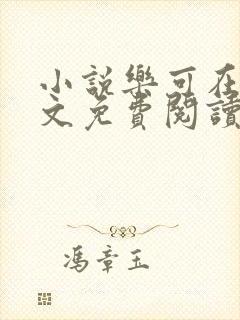 小說樂可在
文免費閱讀
馮章玉